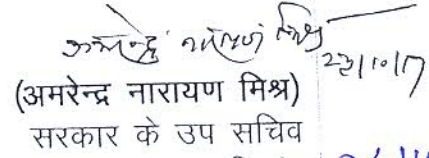 अमरेन्द्र नारायण मिश्र
23/10/17
(अमरेन्द्र नारायण मिश्र)
सरकार के उप सचिव